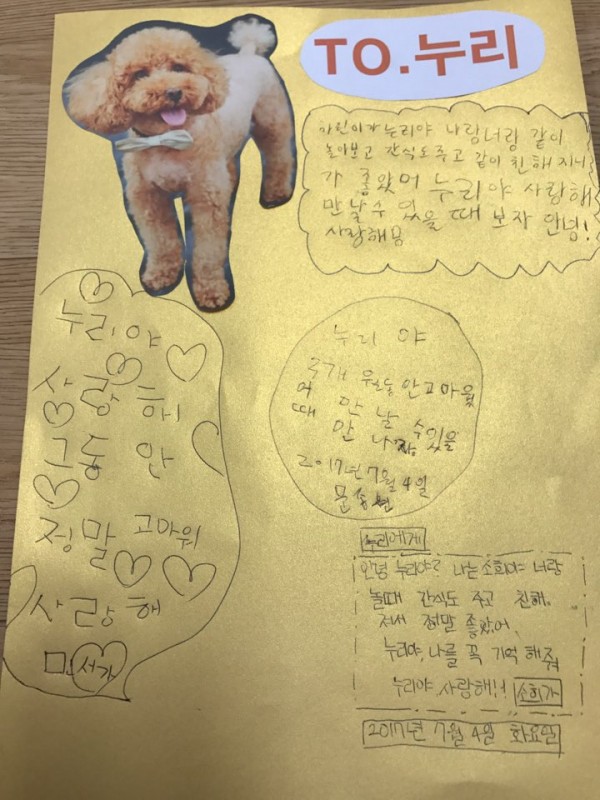 TO.누리
하린이가 누리야 나랑너랑 같이
놀아보고 간식도 주고 같이 친해 지니
가 좋았어 누리야 사랑해
만날 수 있을 때 보자 안녕!
사랑해용
누리야
사랑해
그동안
정말 고마워
사랑해
민서가
누리야
동안 고마웠
어 만날 수있을
때 만나자
2017년 7월 4일
누리에게
안녕 누리야? 나는 소희야 너랑
놀때 간식도 주고 친해
져서 정말 좋았어.
누리야, 나를 꼭 기억해줘
누리야 사랑해!!
소희가
2017년 7월 4일 화요일